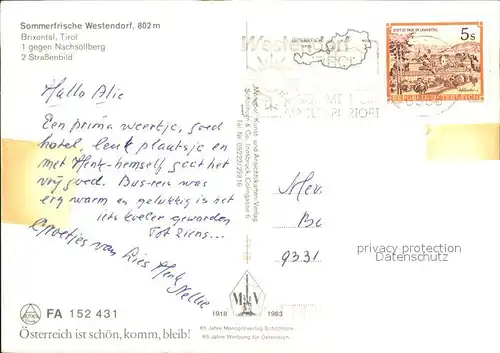 Sommerfrische Westendorf, 802 m
Brixental, Tirol
1 gegen Nachsöllberg
2 Straßenbild
Hallo Alie
Een prima weertje, goed
hotel, leuk plaatsje en
met Henk-hemself gaat het
vrij goed. Bus-reis was
erg warm en gelukkig is het
iets koeler geworden
Tot ziens...
Groetjes van Lies Henk
Nellie
FA 152 431
Österreich ist schön, komm, bleib!
1918 1983
65 Jahre Monopolverlag Schöllhorn
65 Jahre Werbung für Österreich
STIFT ST. PAUL IM LAVANTTAL
5s
REPUBLIK ÖSTERREICH
Mev.
9331
privacy protection
Datenschutz